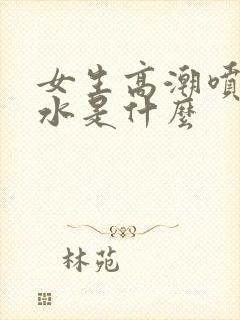 女生高潮噴
水是什麼
林苑